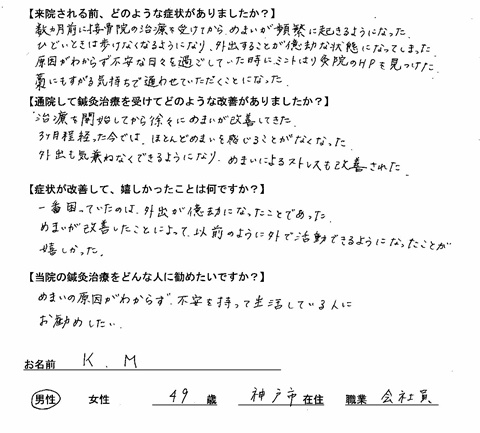 【来院される前、どのような症状がありましたか？】
数ヵ月前に接骨院の治療を受けてから、めまいが頻繁に起きるようになった。
ひどいときは歩けなくなるようになり、外出することが億劫な状態になってしまった。
原因がわからず不安な日々を過ごしていた時にミントはり灸院のHPを見つけた。
藁にもすがる気持ちで通わせていただくことになった。
【通院して鍼灸治療を受けてどのような改善がありましたか？】
治療を開始してから徐々にめまいが改善してきた。
3ヶ月程経った今では、ほとんどめまいを感じることがなくなった。
外出も気兼ねなくできるようになり、めまいによるストレスも改善された。
【症状が改善して、嬉しかったことは何ですか？】
一番困っていたのは、外出が億劫になったことであった。
めまいが改善したことによって、以前のように外で活動できるようになったことが
嬉しかった。
【当院の鍼灸治療をどんな人に勧めたいですか？】
めまいの原因がわからず、不安を持って生活している人に
お勧めしたい。
お名前 K.M
男性 女性 49 歳 神戸市 在住 職業 会社員